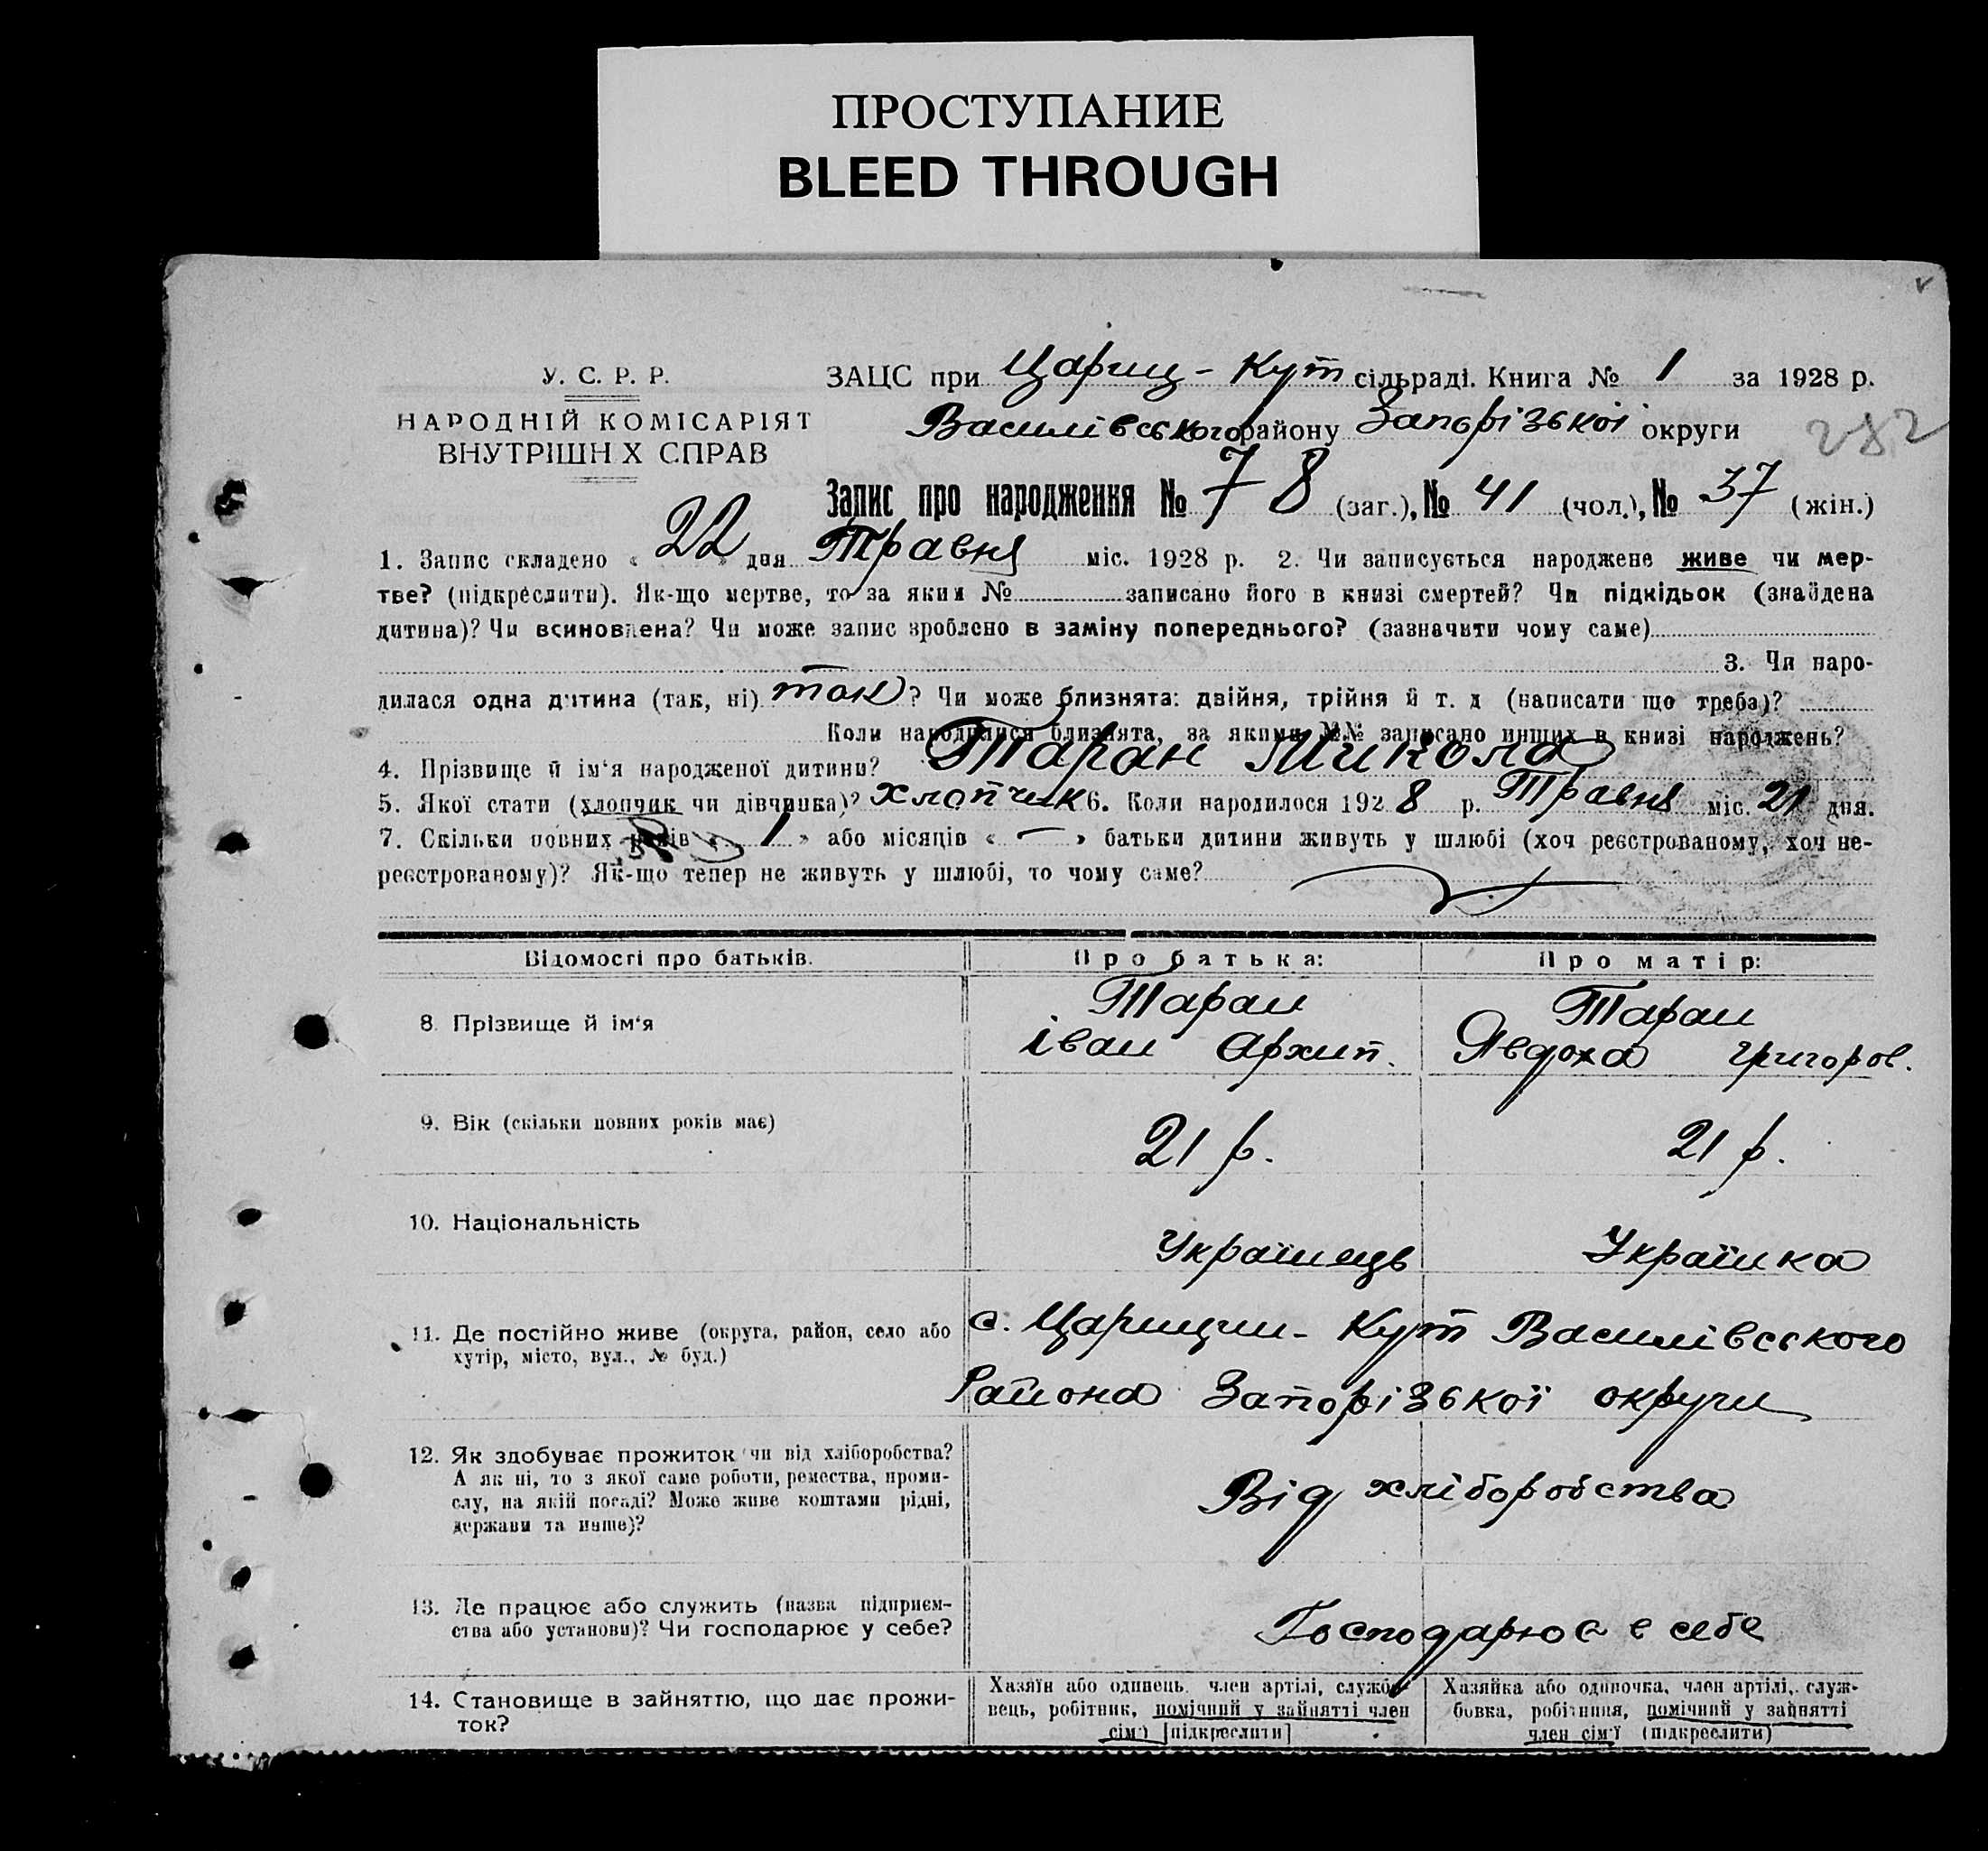 ПРОСТУПАНИЕ
BLEED THROUGH
У. С. Р. Р.
НАРОДНІЙ КОМІСАРІЯТ
ВНУТРІШН Х СПРАВ
ЗАЦС при Цариц-Кут сільраді. Книга № 1 за 1928 р.
Василівського району Запорізької округи
282
Запис про народження № 78 (заг.), № 41 (чол.), № 37 (жін.)
1. Запис складено « 22 » дня Травня міс. 1928 р. 2. Чи записується народжене живе чи мер-
тве? (підкреслити). Як-що мертве, то за яким № записано його в книзі смертей? Чи підкідьок (знайдена
дитина)? Чи всиновлена? Чи може запис зроблено в заміну попереднього? (зазначити чому саме)
3. Чи наро-
дилася одна дитина (так, ні) так? Чи може близнята: двійня, трійня й т. д (написати що треба)?
Коли народилися близнята, за якими №№ записано инших в книзі народжень?
4. Прізвище й ім'я народженої дитини? Таран Микола
5. Якої стати (хлопчик чи дівчинка)? хлопчик 6. Коли народилося 1928 р. Травня міс. 21 дня.
7. Скільки повних років « 1 » або місяців « — » батьки дитини живуть у шлюбі (хоч реєстрованому, хоч не-
реєстрованому)? Як-що тепер не живуть у шлюбі, то чому саме?
Відомості про батьків. Про батька: Про матір:
8. Прізвище й ім'я Таран Іван Архип. Таран Явдоха Григоров.
9. Вік (скільки повних років має) 21 р. 21 р.
10. Національність Українець Українка
11. Де постійно живе (округа, район, село або
хутір, місто, вул., № буд.)
с. Царицин-Кут Василівського
Района Запорізької округи
12. Як здобуває прожиток чи від хліборобства?
А як ні, то з якої саме роботи, ремества, проми-
слу, на якій посаді? Може живе коштами рідні,
держави та инше)?
Від хліборобства
13. Де працює або служить (назва підприєм-
ства або установи)? Чи господарює у себе?
Господарює в себе
14. Становище в зайняттю, що дає прожи-
ток?
Хазяїн або одинець, член артілі, службо-
вець, робітник, помічний у зайнятті член
сім'ї [підкреслити]
Хазяйка або одиночка, член артілі, служ-
бовка, робітниця, помічний у зайнятті
член сім'ї (підкреслити)